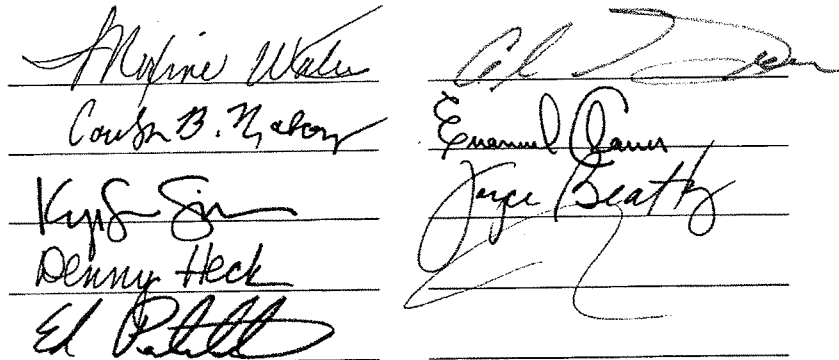 Maxine Waters
Carolyn B. Maloney
Kyrsten Sinema
Denny Heck
Ed Perlmutter
Al Green
Emanuel Cleaver
Joyce Beatty